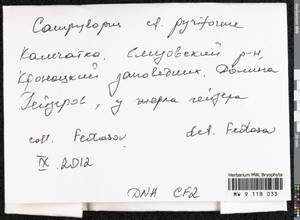 Campylopus cf. pyriforme
Камчатка. Елизовский р-н,
Кроноцкий заповедник. Долина
Гейзеров, у жерла гейзера
coll. Fedosov det. Fedosov
IX. 2012
DNA CF2
Herbarium MW, Bryophyta
MW 9 118 033